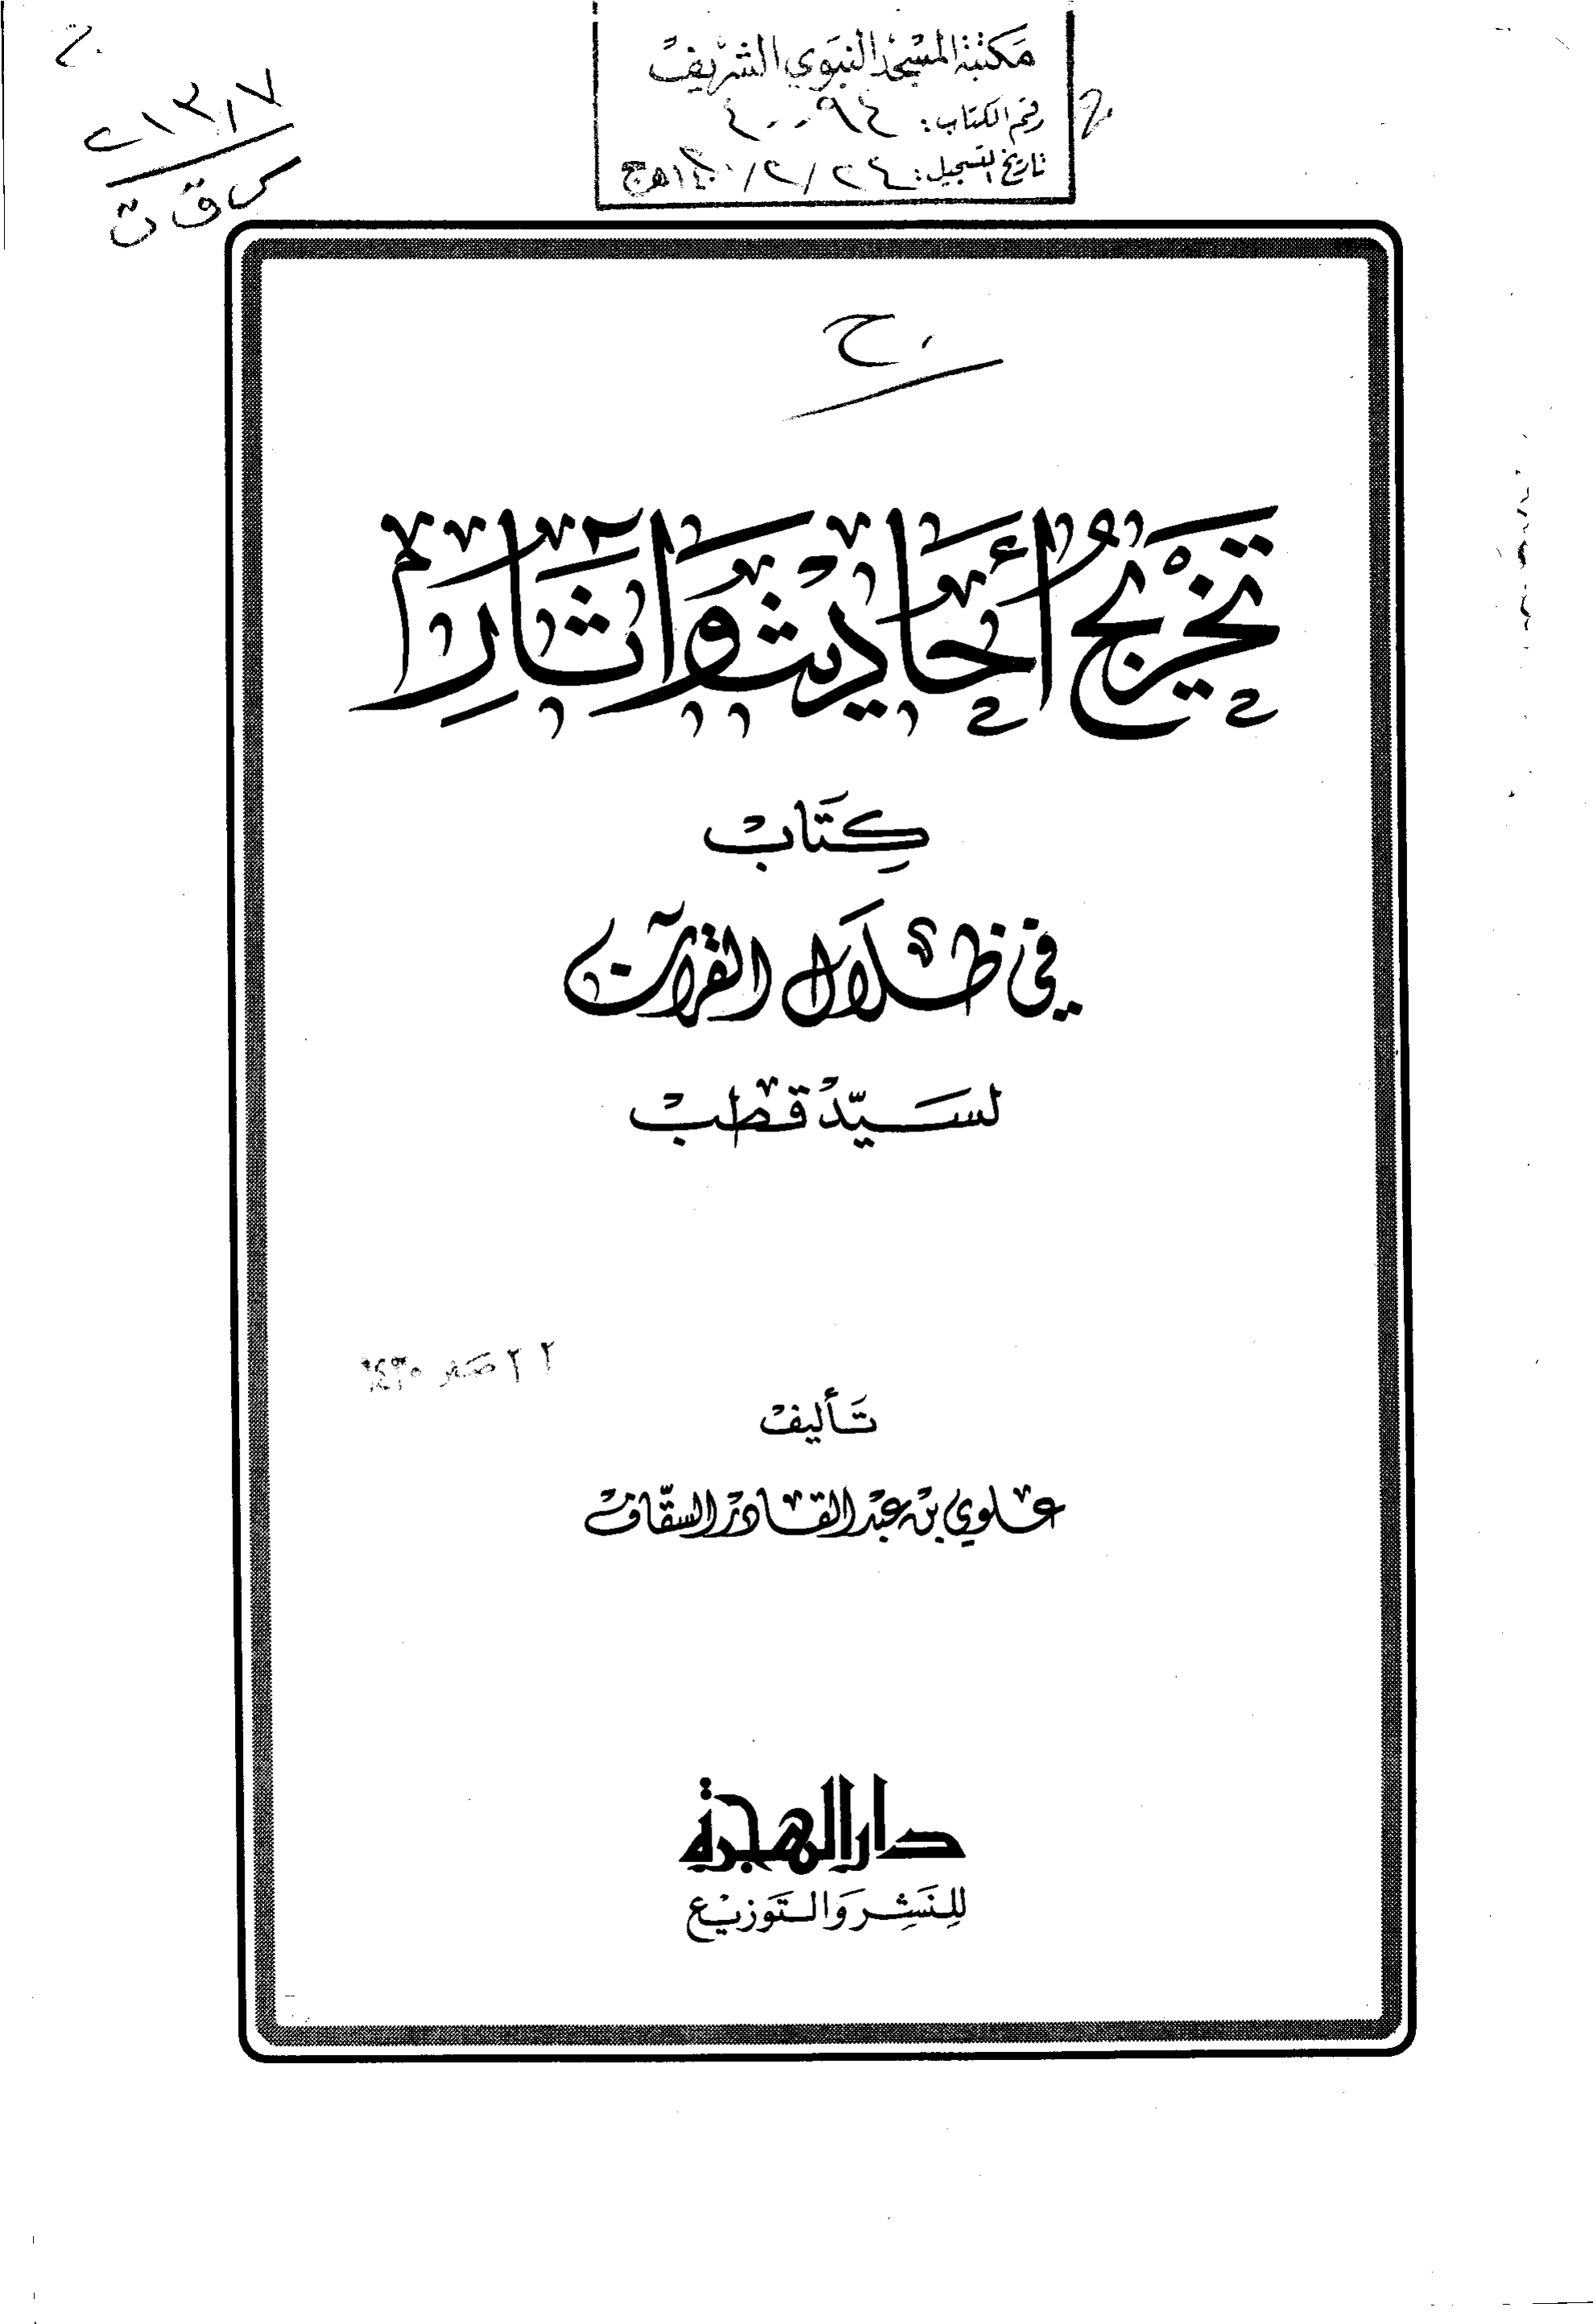 مكتبة المسجد النبوي الشريف
رقم الكتاب:
تاريخ التسجيل:
٢١٣/٧
س ق ت
تَخْرِيجُ أَحَادِيثَ وَآثَارِ
كِتَابْ
في ظِلَالِ القرآن
لسَيِّدْ قُطبْ
٢٢ صفر ١٤٣٠
تَأليفْ
عَلوي بْن عَبْد القَادرْ السَّقَّافْ
دار الهجرة
لِلنَشِر وَالتَوزيْع